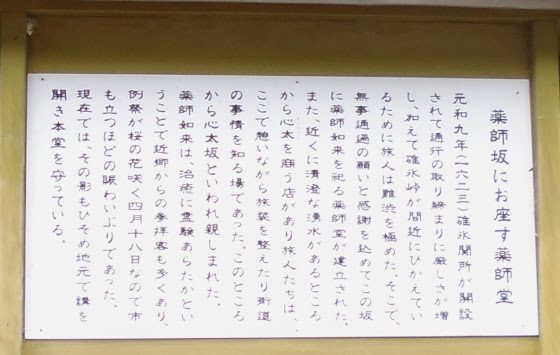 薬師坂にお座す薬師堂
元和九年(一六二三)碓氷関所が開設
されて通行の取り締まりに厳しさが増
し、加えて碓氷峠が間近にひかえてい
るために旅人は難渋を極めた。そこで、
無事通過の願いと感謝を込めてこの坂
に薬師如来を祀る薬師堂が建立された。
また、近くに清澄な湧水があるところ
から心太を商う店があり旅人たちは、
ここで憩いながら旅装を整えたり街道
の事情を知る場であった。このところ
から心太坂といわれ親しまれた。
薬師如来は、治癒に霊験あらたかとい
うことで近郷からの参拝客も多くあり、
例祭が桜の花咲く四月十八日なので市
も立つほどの賑わいぶりであった。
現在では、その影もひそめ地元で講を
開き本堂を守っている。